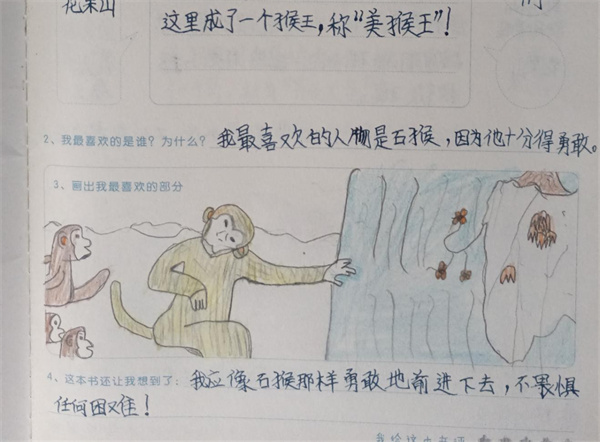 花果山
这里成了一个猴王，称“美猴王”！
2、我最喜欢的是谁？为什么？我最喜欢的人物是石猴，因为他十分得勇敢。
3、画出我最喜欢的部分
4、这本书还让我想到了：我应像石猴那样勇敢地前进下去，不畏惧
任何困难！